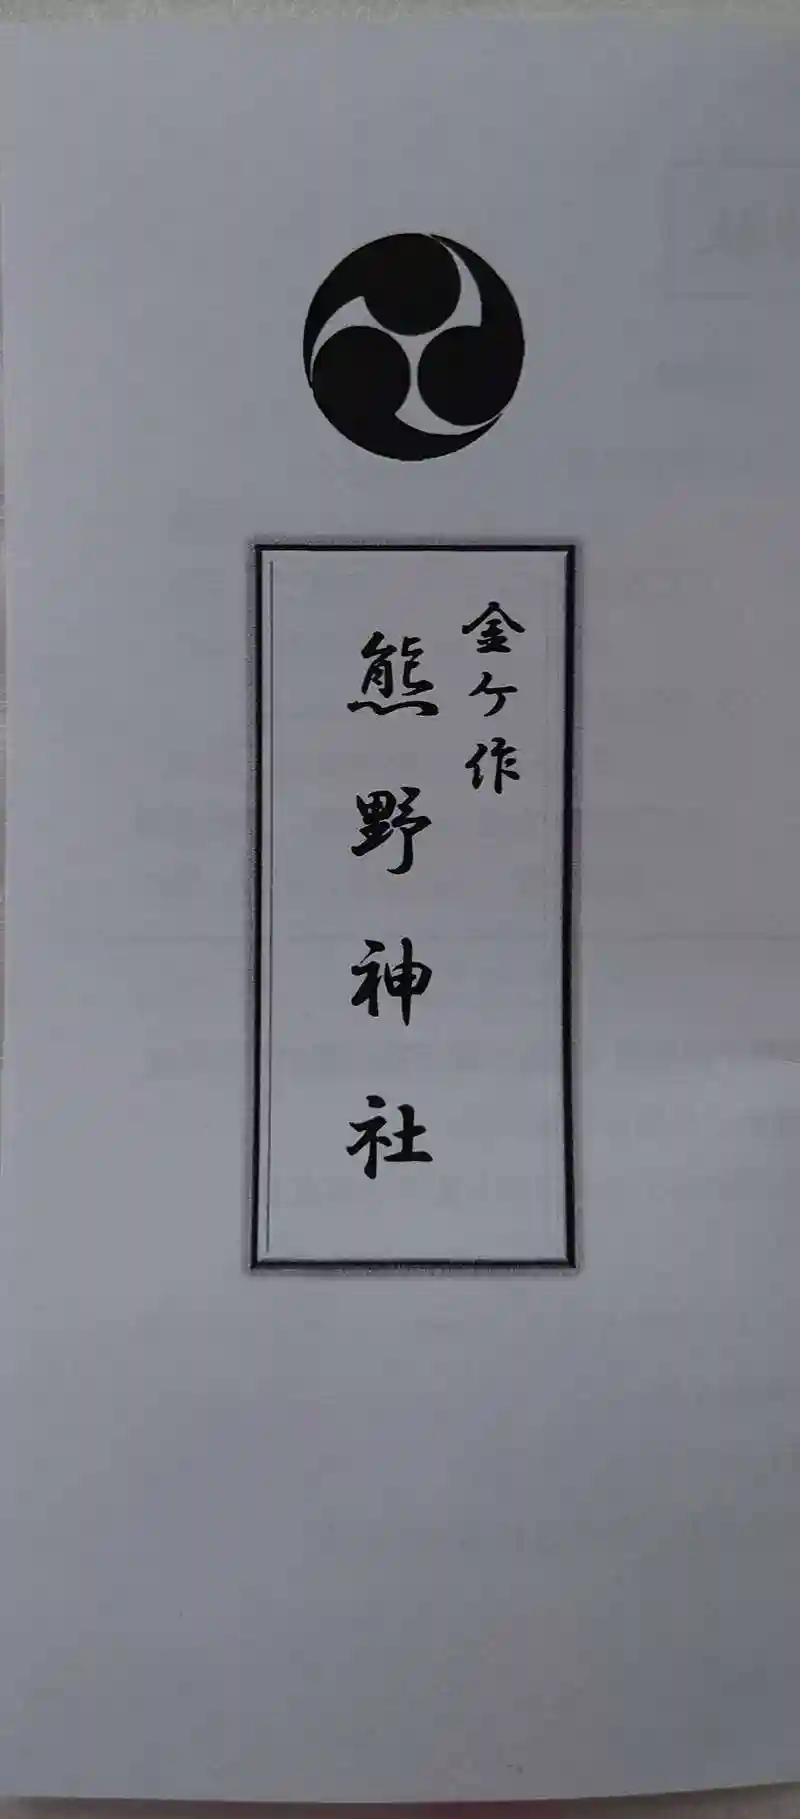 金ケ作
熊野神社